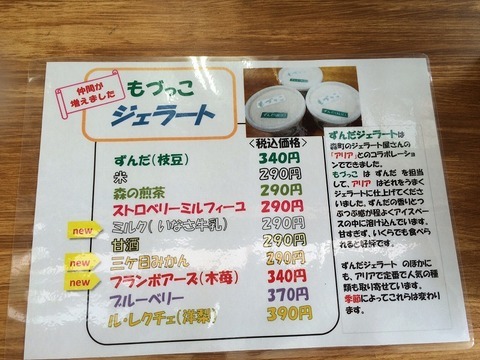 仲間が
増えました
もづっこ
ジェラート
<税込価格>
ずんだ(枝豆) 340円
米 290円
森の煎茶 290円
ストロベリーミルフィーユ 290円
new ミルク(いなさ牛乳) 290円
甘酒 290円
new 三ケ日みかん 290円
new フランボアーズ(木苺) 340円
ブルーベリー 370円
ル・レクチェ(洋梨) 390円
ずんだジェラートは
森町のジェラート屋さんの
「アリア」とのコラボレーショ
ンでできました。
もづっこ は ずんだ を担当
して、アリア はそれをうまく
ジェラートに仕上げてくださ
いました。ずんだの香りとつ
ぶつぶ感が程よくアイスベー
スの中に溶け込んでいます。
甘すぎず、いくらでも食べら
れると好評です。
ずんだジェラート のほかに
も、アリアで定番で人気の種
類も取り寄せています。
季節によってこれらは変わり
ます。